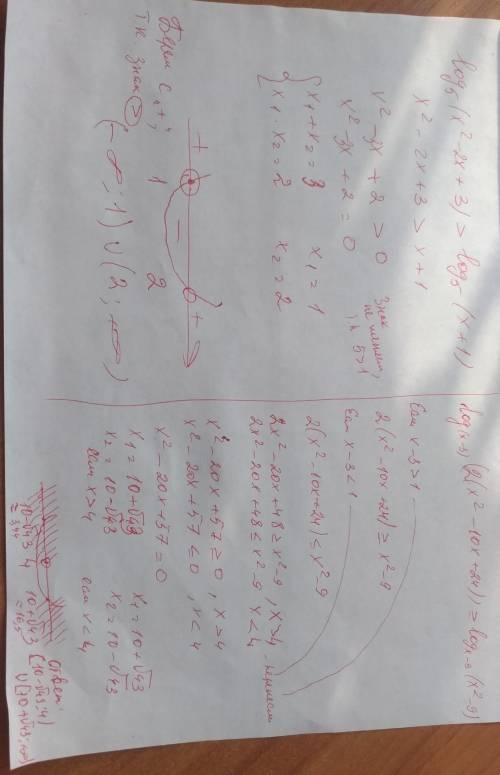 log₅(x²-2x+3) > log₅(x+1)
x²-2x+3 > x+1
x²-3x+2 > 0
Знак не меняем, т.к 5>1
x²-3x+2=0
{ x₁+x₂=3 x₁=1
x₁·x₂=2 x₂=2
+ - +
1 2
Берем с „+“,
т.к знак >
(-∞;1)∪(2;+∞)
log(x-3)(2(x²-10x+24)) ≥ log x-3 (x²-9)
Если x-3>1
2(x²-10x+24) ≥ x²-9
Если x-3<1
2(x²-10x+24) ≤ x²-9
2x²-20x+48 ≥ x²-9, x>4
2x²-20x+48 ≤ x²-9 x<4
перенесем
x²-20x+57 ≥ 0, x>4
x²-20x+57 ≤ 0, x<4
x²-20x+57=0
x₁=10+√43 x₁=10+√43
x₂=10-√43 x₂=10-√43
если x>4 если x<4
10-√43 4 10+√43
≈3,44 ≈16,5
Ответ:
[10-√43;4)
∪[10+√43;+∞)